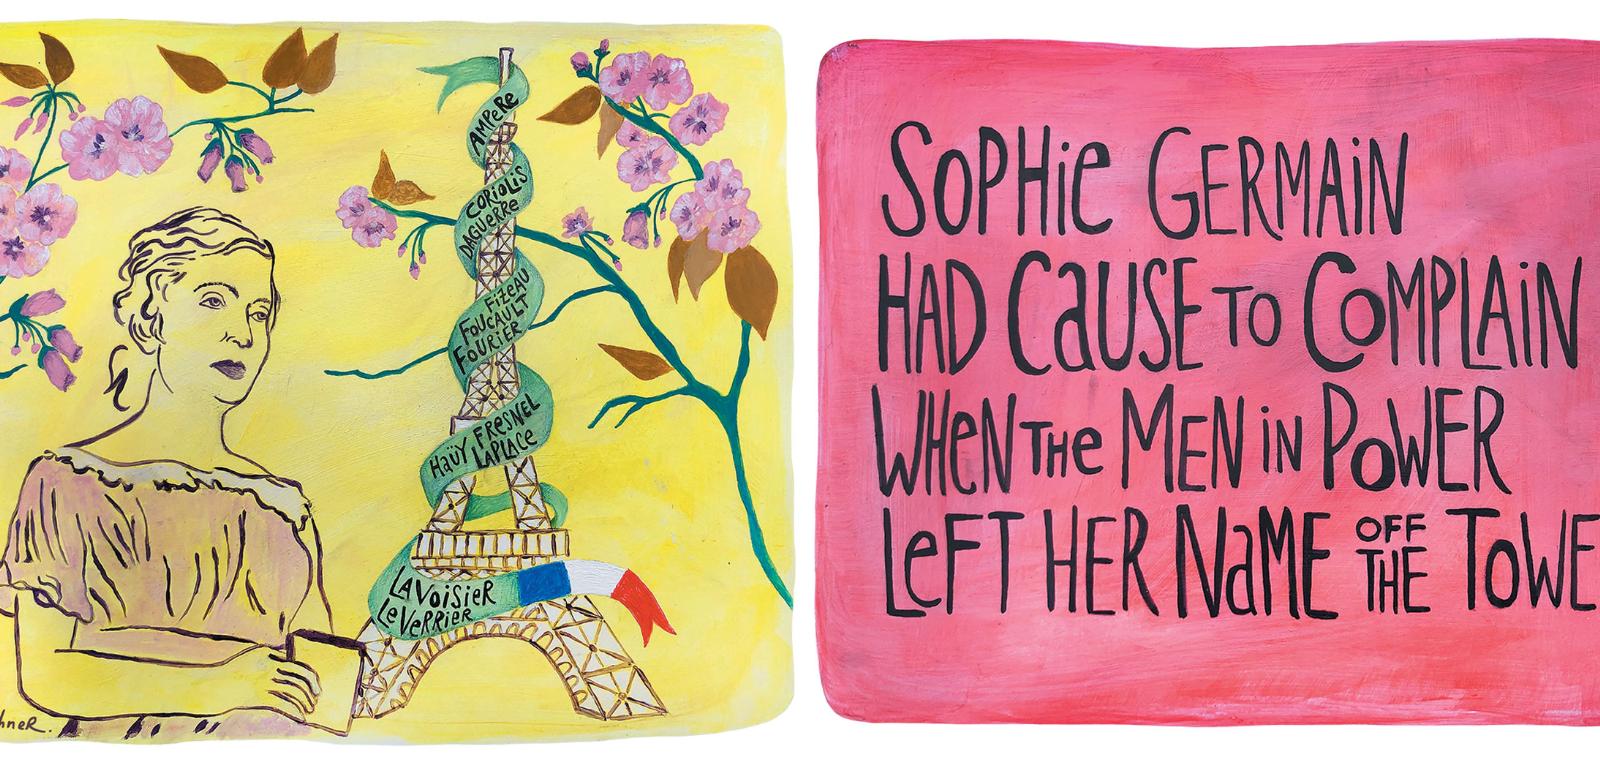 AMPERE
CORIOLIS
DAGUERRE
FIZEAU
FOUCAULT
FOURIER
HAÜY FRESNEL
LAPLACE
LAVOISIER
LEVERRIER
hner.
SOPHIE GERMAIN
HAD CAUSE TO COMPLAIN
WHEN THE MEN IN POWER
LEFT HER NAME OFF THE TOWE